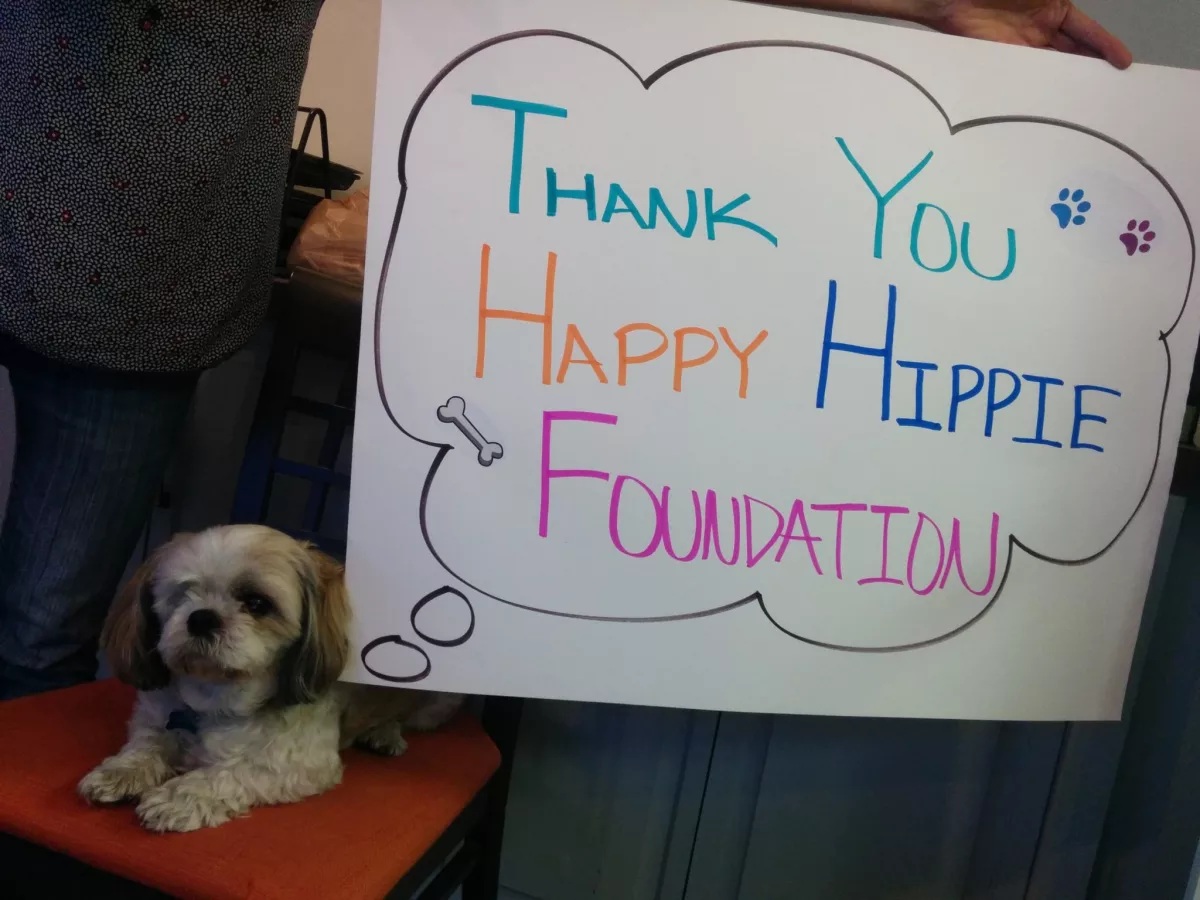 THANK YOU
HAPPY HIPPIE
FOUNDATION